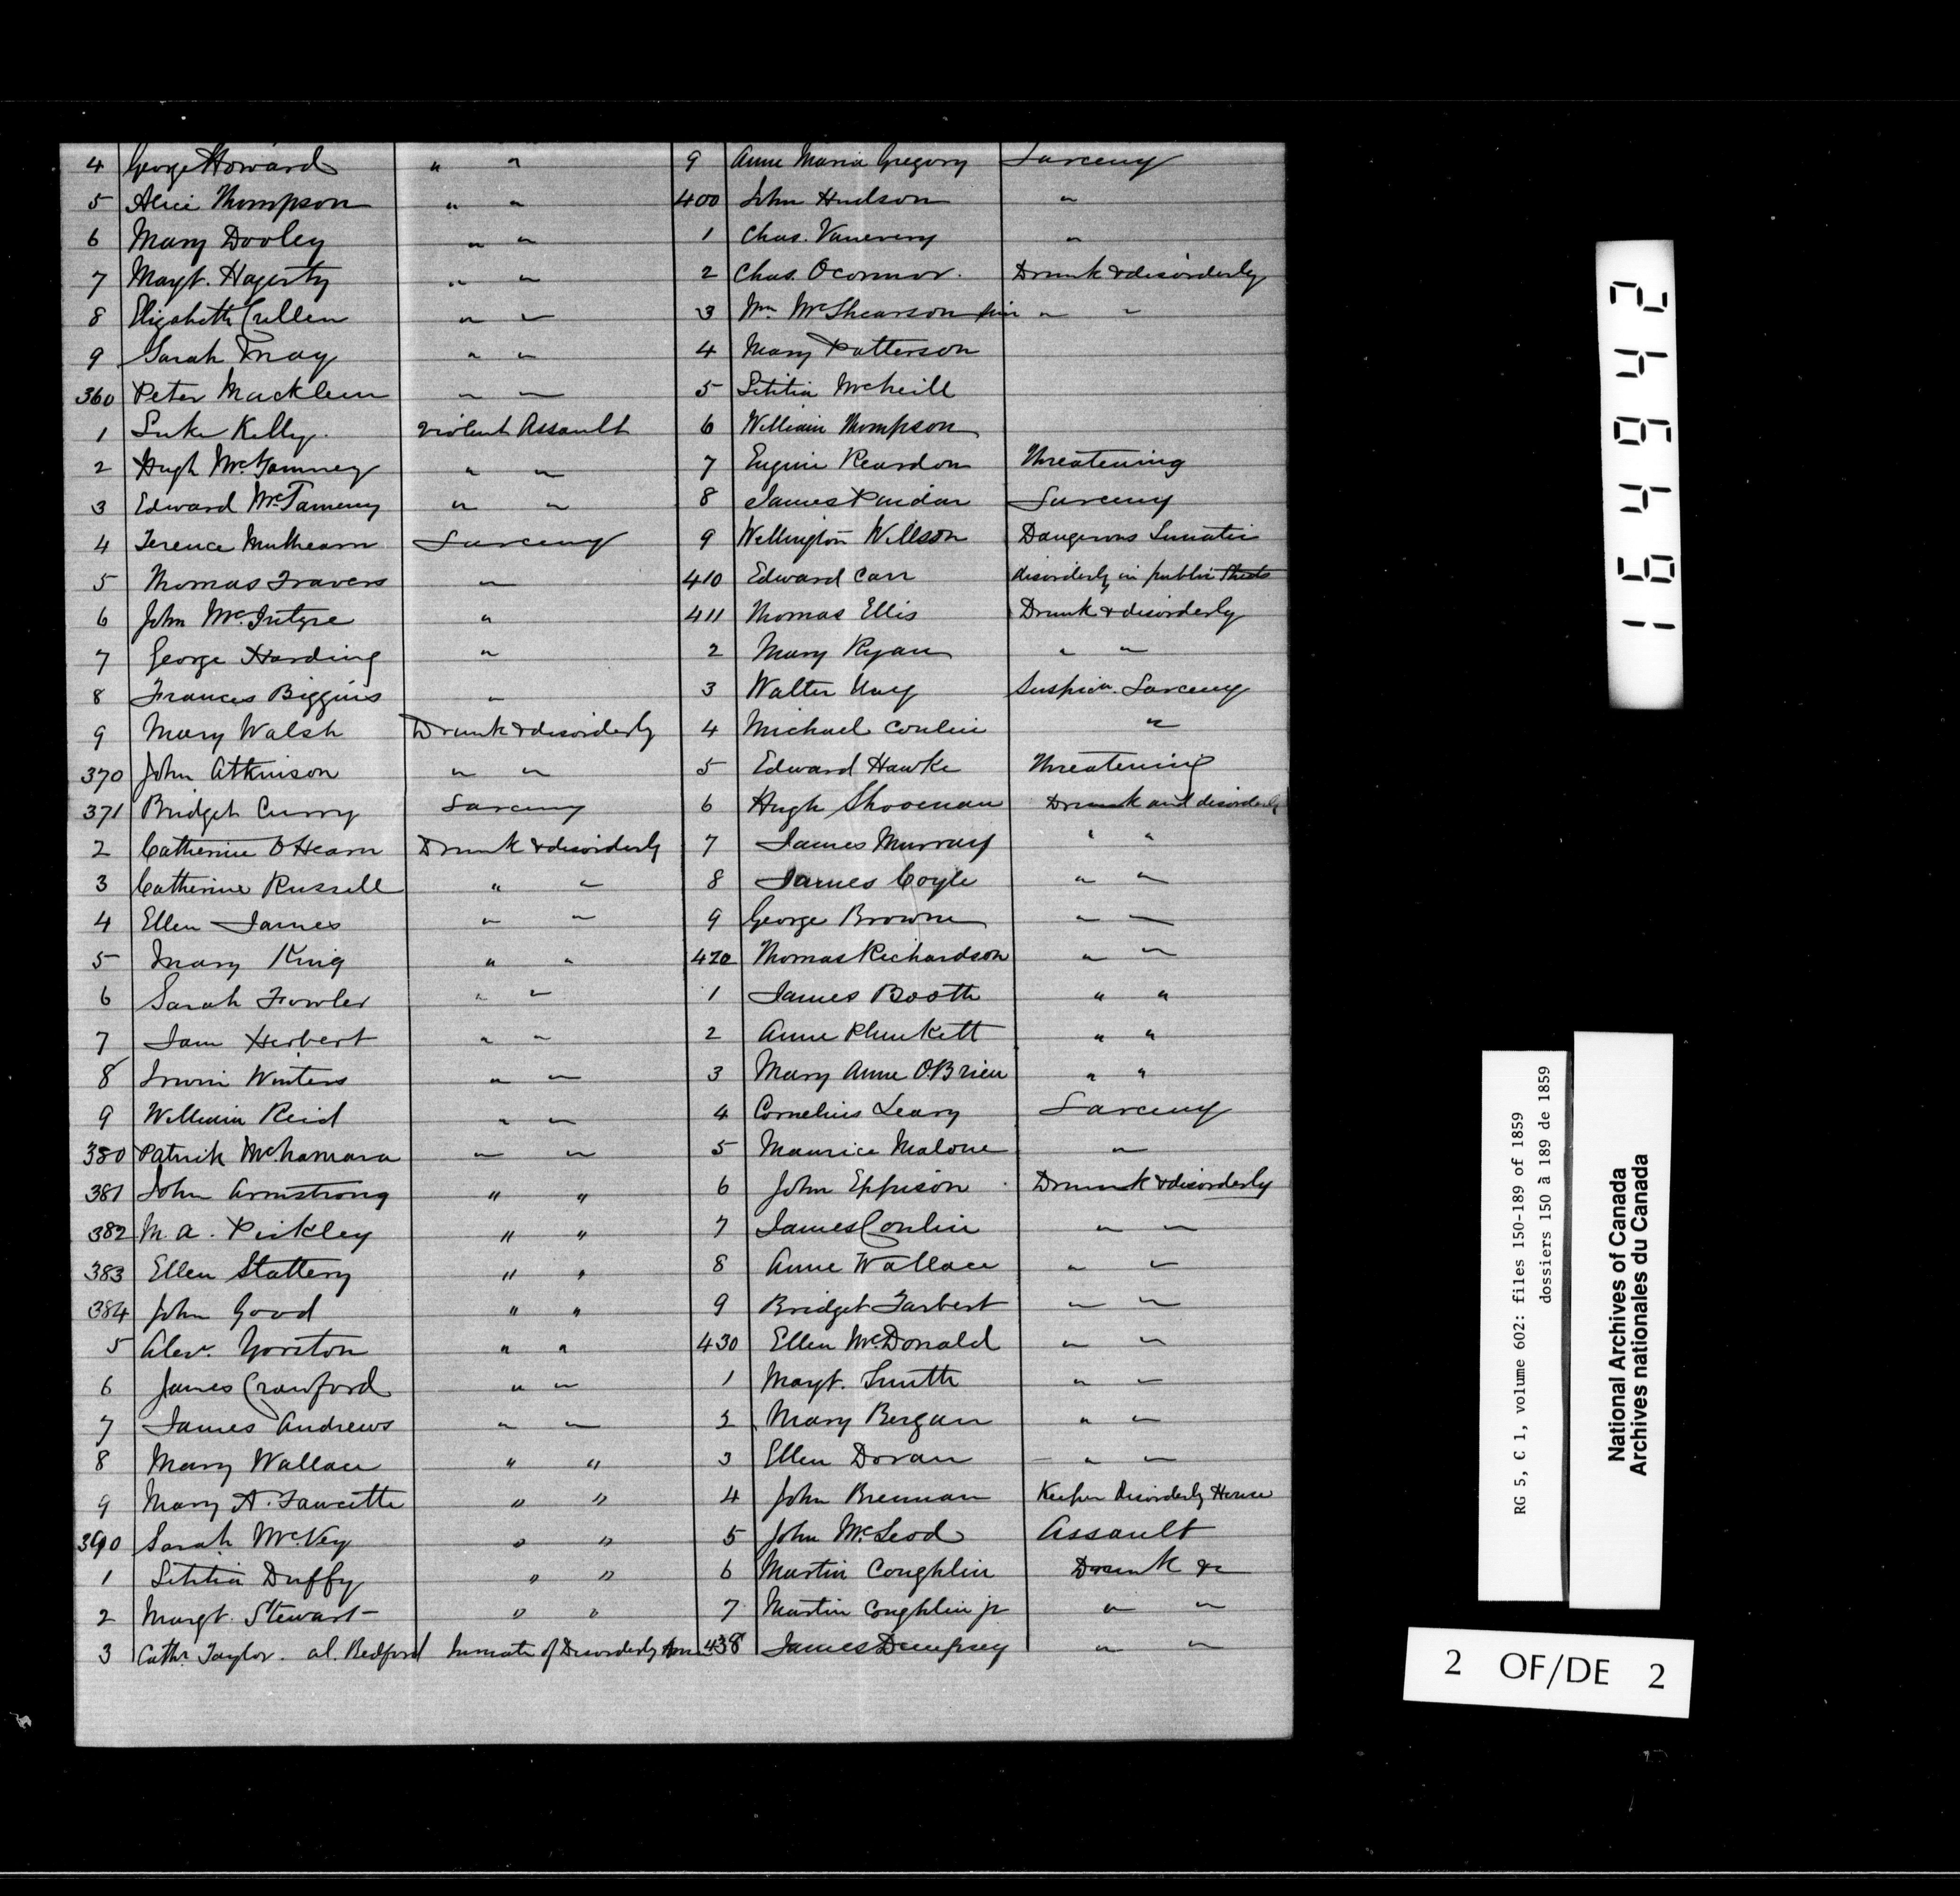 4 George Howard " "
5 Alice Thompson " "
6 Mary Dooley " "
7 Margt. Hagerty " "
8 Elizabeth Cullen " "
9 Sarah May " "
360 Peter Macklem " "
1 Luke Kelly. violent Assault
2 Hugh McTamney " "
3 Edward McTameny " "
4 Terence Mulhearn Larceny
5 Thomas Travers "
6 John McIntyre "
7 George Harding "
8 Frances Biggins "
9 Mary Walsh Drunk & disorderly
370 John Atkinson " "
371 Bridget Curry Larceny
2 Catherine O'Hearn Drunk & disorderly
3 Catherine Russell " "
4 Ellen James " "
5 Mary King " "
6 Sarah Fowler " "
7 Jane Herbert " "
8 Irwin Winters " "
9 William Reid " "
380 Patrick McNamara " "
381 John Armstrong " "
382 M. A. Pickley " "
383 Ellen Slattery " "
384 John Good " "
5 Alexr. Yorston " "
6 James Crawford " "
7 James Andrews " "
8 Mary Wallace " "
9 Mary A. Fawcette " "
390 Sarah McVey " "
1 Letitia Duffy " "
2 Margt. Stewart " "
3 Cathe. Taylor. al. Bedford Inmate of Disorderly House
9 Anne Maria Gregory Larceny
400 John Hudson "
1 Chas. Vanevery "
2 Chas. OConnor. Drunk & disorderly
3 Wm McShearson " "
4 Mary Patterson
5 Letitia McNeill
6 William Thompson
7 Eugine Reardon Threatening
8 James Pindar Larceny
9 Wellington Willson Dangerous Lunatic
410 Edward Carr disorderly in public Streets
411 Thomas Ellis Drunk & disorderly
2 Mary Ryan " "
3 Walter Suspicn. Larceny
4 Michael Conlin "
5 Edward Hawke Threatening
6 Hugh Shooenan Drunk and disorderly
7 James Murray " "
8 James Coyle " "
9 George Browne " "
420 Thomas Richardson " "
1 James Booth " "
2 Anne Plunkett " "
3 Mary Anne O'Brien " "
4 Cornelius Leary Larceny
5 Maurice Malone "
6 John Eppison Drunk & disorderly
7 James Conlin " "
8 Anne Wallace " "
9 Bridget Tarbert " "
430 Ellen McDonald " "
1 Margt. Smith " "
2 Mary Bergan " "
3 Ellen Doran " "
4 John Brennan Keeper Disorderly House
5 John McLeod Assault
6 Martin Coughlin Drunk &c
7 Martin Coughlin jr " "
438 James Dempsey " "
1 9 4 9 4 2
RG 5, C 1, volume 602: files 150-189 of 1859
dossiers 150 à 189 de 1859
National Archives of Canada
Archives nationales du Canada
2 OF/DE 2